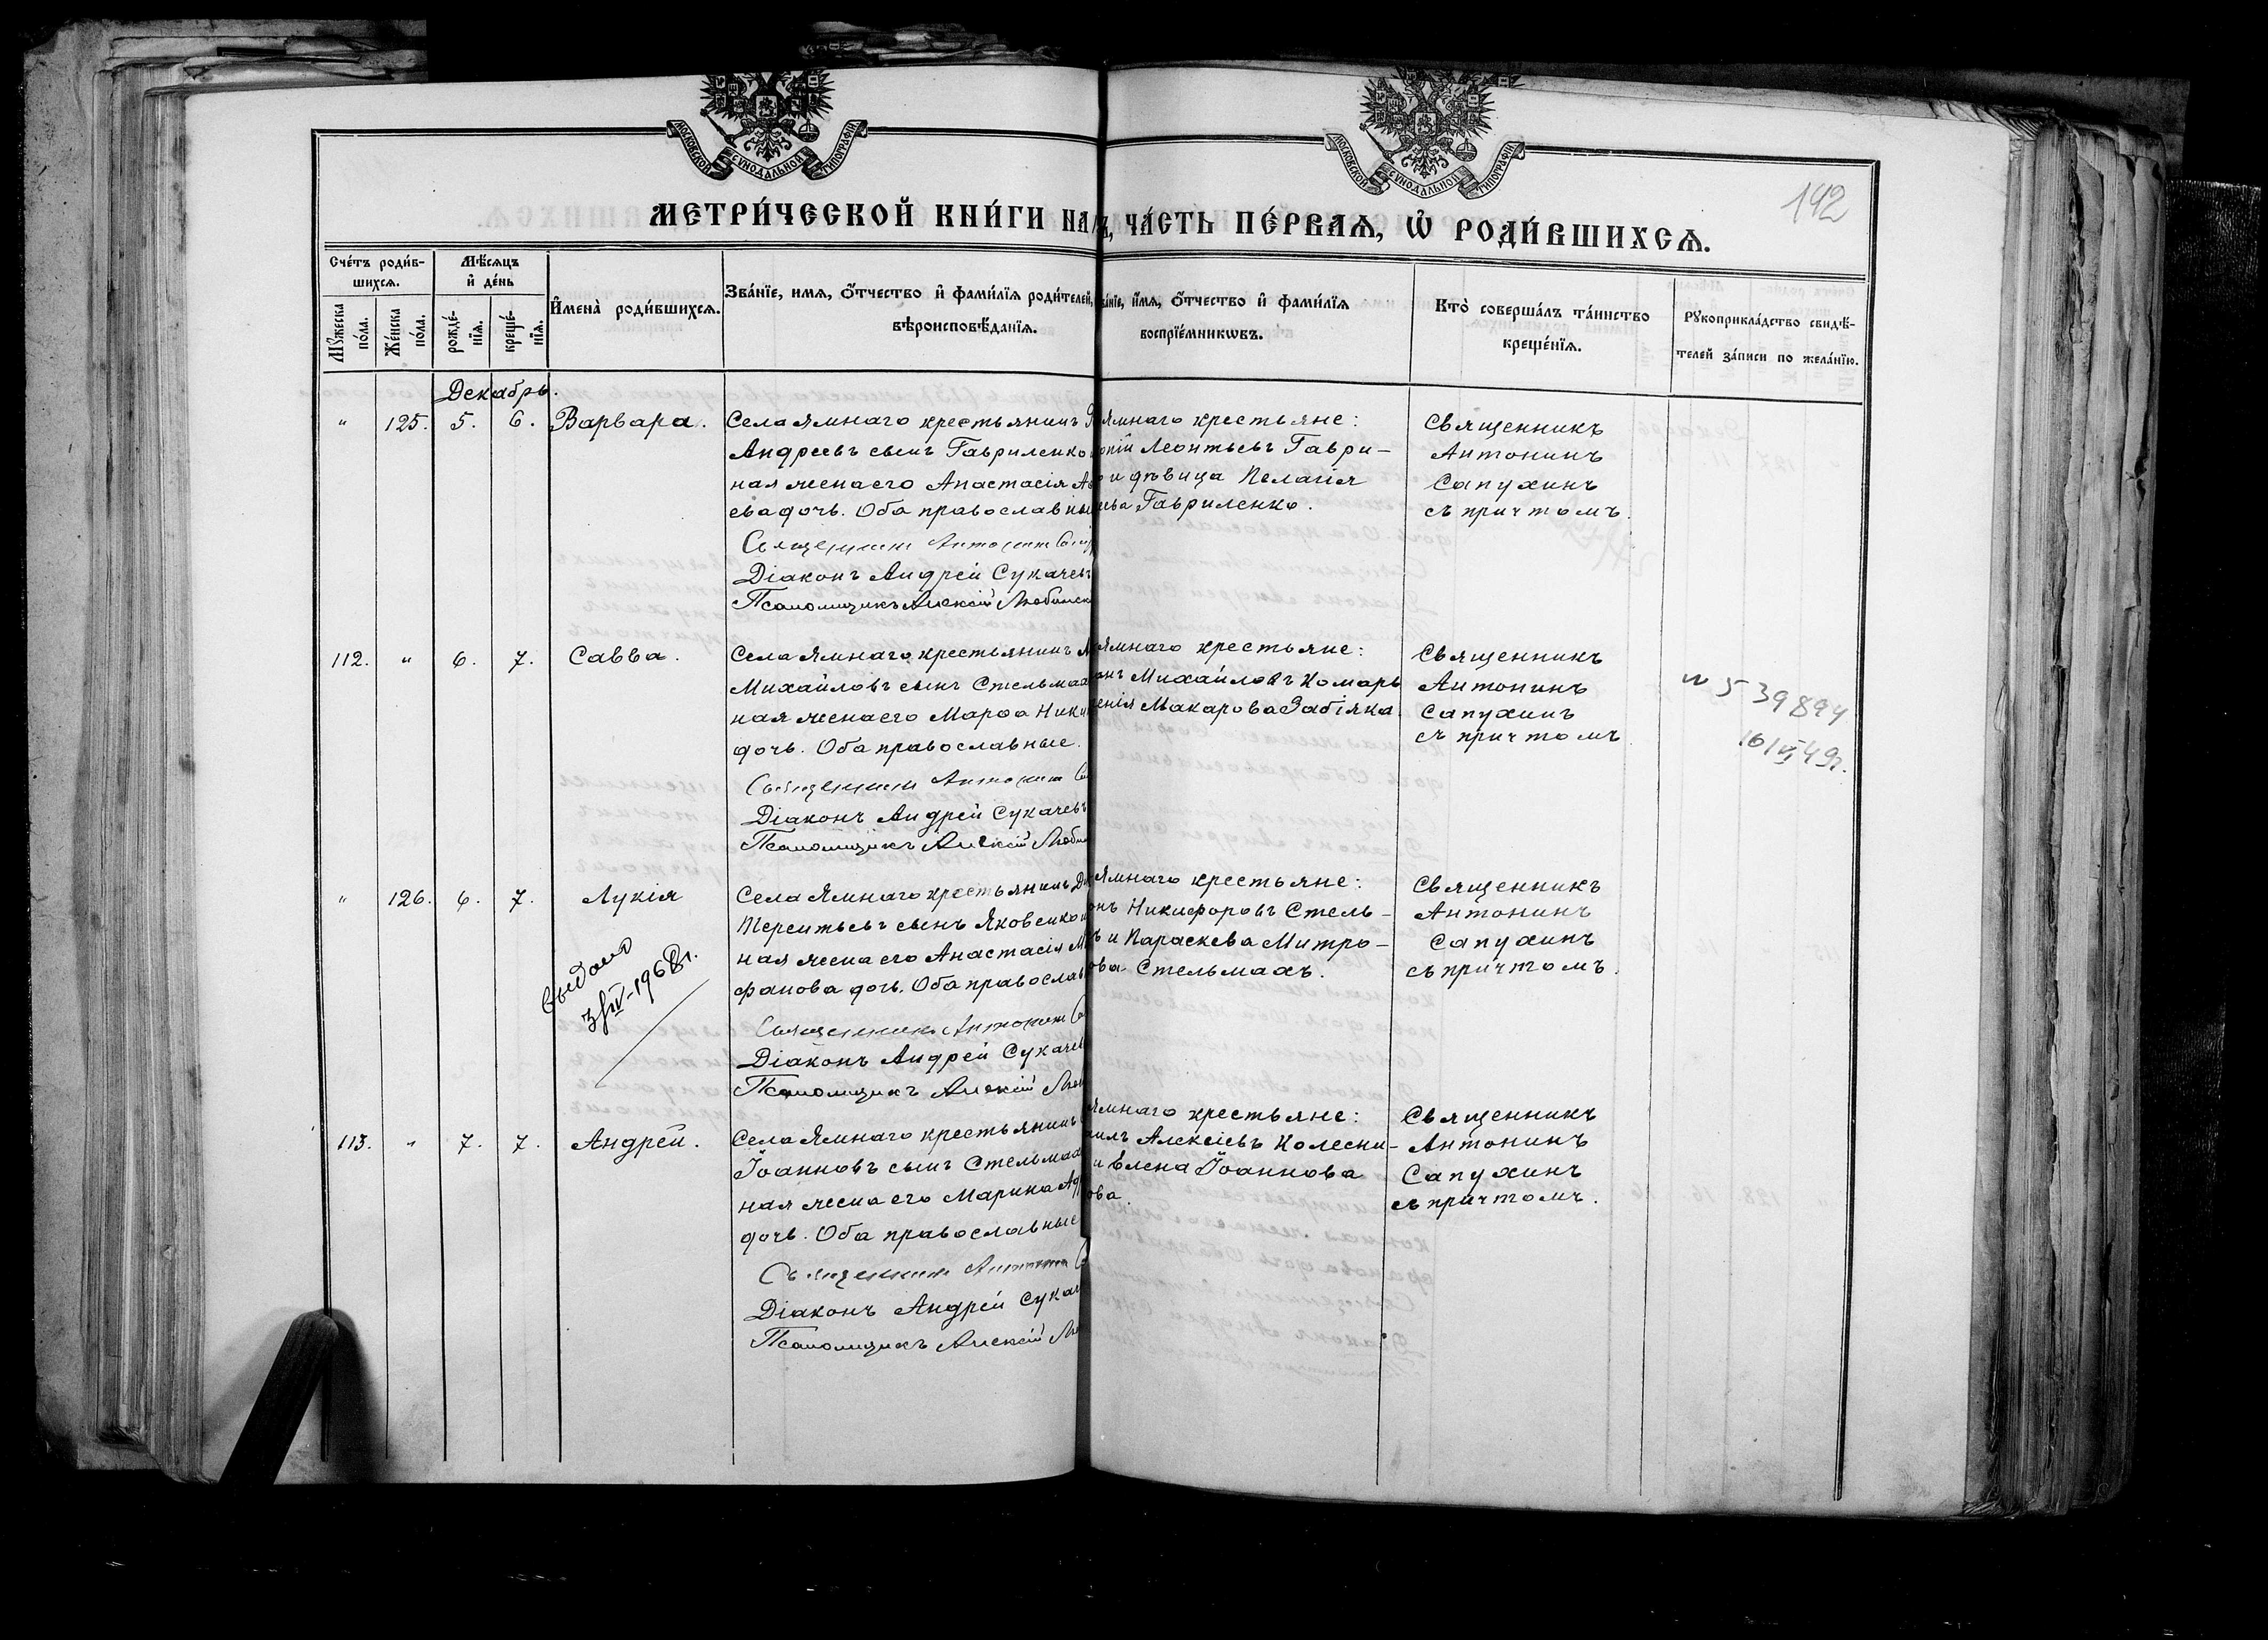 МОСКОВСКОЙ СѴНОДАЛЬНОЙ ТИПОГРАФІИ
МОСКОВСКОЙ СѴНОДАЛЬНОЙ ТИПОГРАФІИ
192
МЕТРИ́ЧЕСКОЙ КНИ́ГИ НА
Ъ, ЧА́СТЬ ПЕ́РВАѦ, Ѡ҆ РОДИ́ВШИХСѦ.
Сче́тъ роди́в-
шихсѧ.
Мꙋжеска
по́ла.
Же́нска
по́ла.
Мѣ́сѧцъ
и҆ де́нь
рожде́-
нїѧ.
креще́-
нїѧ.
И҆мена̀ роди́вшихсѧ.
Зва́нїе, имѧ, ѻ҆́тчество и҆ фами́лїѧ роди́телей,
вѣроисповѣ́данїѧ.
ва́нїе, и҆́мѧ, ѻ҆́тчество и҆ фами́лїѧ
воспрїе́мникѡвъ.
Кто̀ соверша́лъ та́инство
креще́нїѧ.
Рꙋкоприкла́дство свидѣ́-
телей за́писи по жела́нїю.
Декабрь.
" 125. 5. 6. Варвара.
Села Ямнаго крестьянинъ
Андреевъ сынъ Гавриленко
ная жена его Анастасія
ева дочь. Оба православные
Священникъ Антонинъ
Діаконъ Андрей Сукачевъ
Псаломщикъ Алексій
Ямнаго крестьяне:
Леонтьевъ Гаври-
и дѣвица Пелагія
ева Гавриленко.
Священникъ
Антонинъ
Сапухинъ
съ причтомъ.
112. " 6. 7. Савва.
Села Ямнаго крестьянинъ
Михайловъ сынъ Стельмах
ная жена его Марѳа Ники
дочь. Оба православные.
Священникъ Антонинъ
Діаконъ Андрей Сукачевъ
Псаломщикъ Алексій
Ямнаго крестьяне:
Михайловъ Комарь
енія Макарова Забіяка.
Священникъ
Антонинъ
Сапухинъ
съ причтомъ
539894
16/VI 49г.
" 126. 6. 7. Лукія
выдано
3/IV-1968г.
Села Ямнаго крестьянинъ
Терентьевъ сынъ Яковенко
ная жена его Анастасія
фанова дочь. Оба православ
Священникъ Антонинъ
Діаконъ Андрей Сукачев
Псаломщикъ Алексій
Ямнаго крестьяне:
онъ Никифоровъ Стель-
и Параскева Митро-
ова Стельмахъ.
Священникъ
Антонинъ
Сапухинъ
съ причтомъ.
113. " 7. 7. Андрей.
Села Ямнаго крестьянинъ
Іоанновъ сынъ Стельмах
ная жена его Марина
дочь. Оба православные
Священникъ Антонинъ
Діаконъ Андрей Сукач
Псаломщикъ Алексій
Ямнаго крестьяне:
илъ Алексіевъ Колесни-
и Елена Іоаннова
ова.
Священникъ
Антонинъ
Сапухинъ
съ причтомъ.